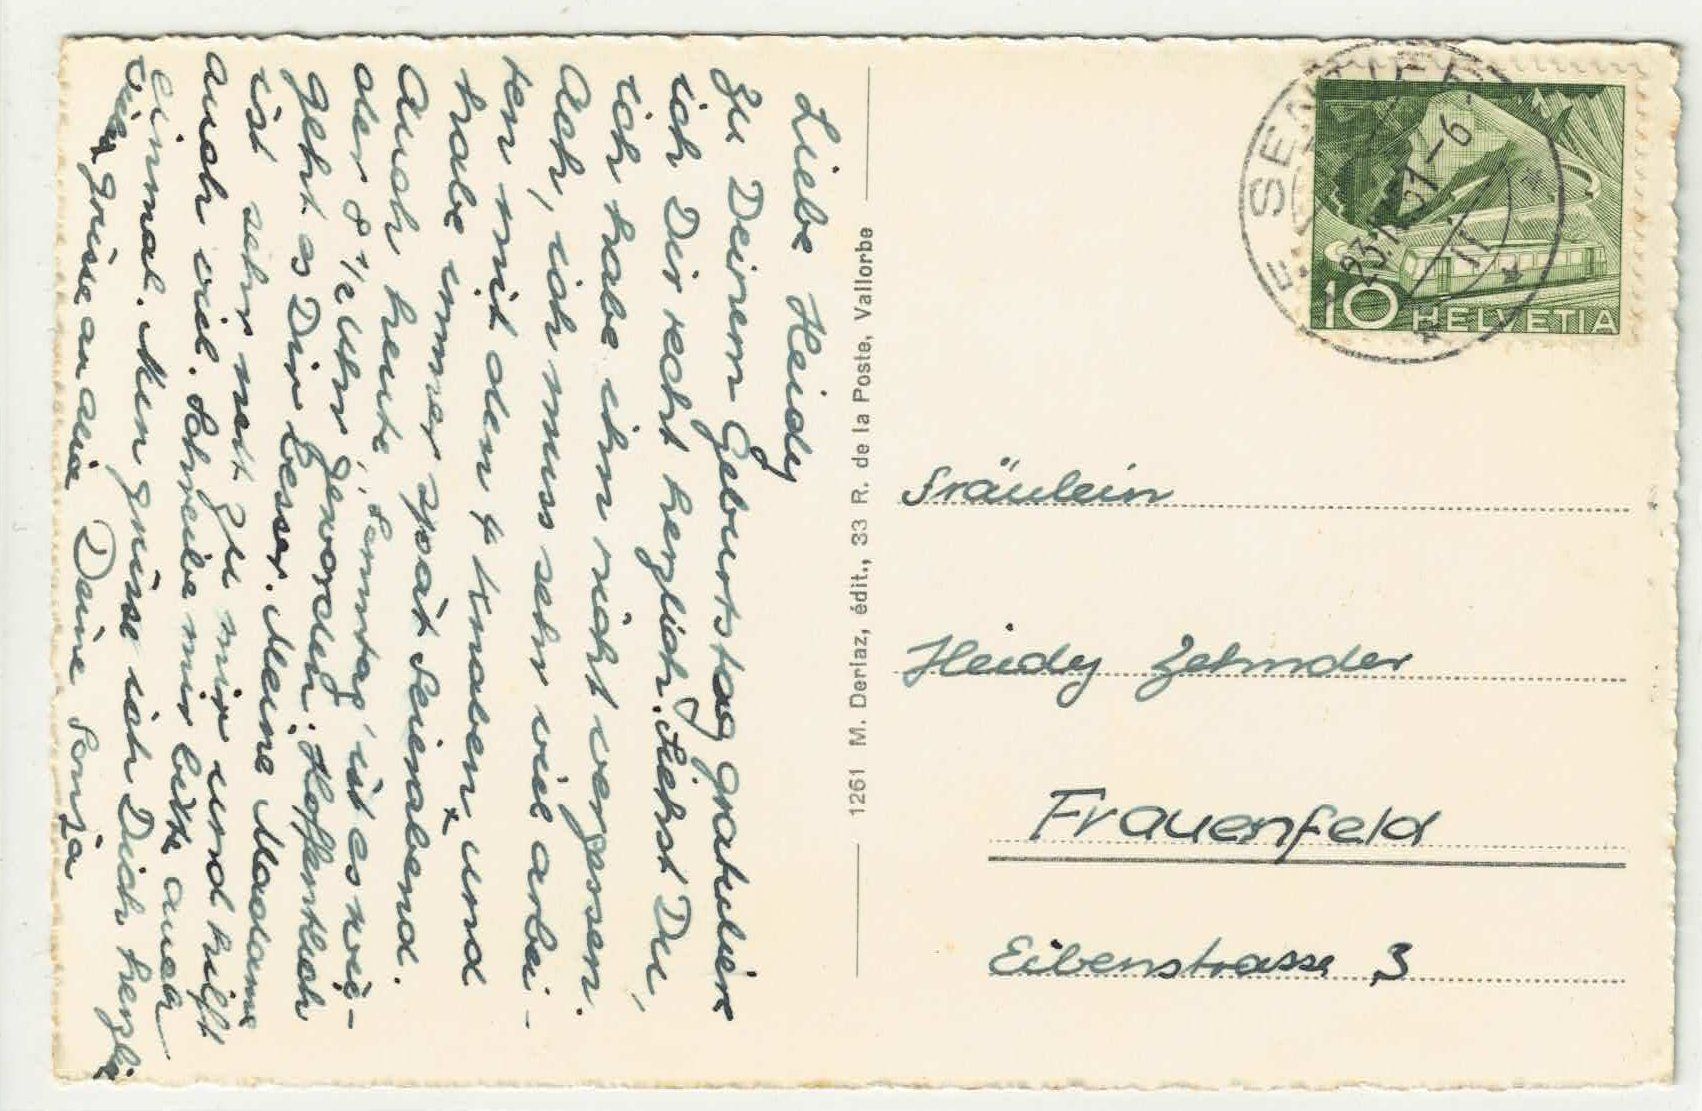 Liebe Heidy
Zu Deinem Geburtstag gratuliere
ich Dir recht herzlich. Siehst Du,
ich habe ihn nicht vergessen.
Ach, ich muss sehr viel arbei-
ten mit den 4 Knaben, und
habe immer spät Feierabend.
Auch heute, Sonntag ist es wie-
der 8 1/2 Uhr geworden. Hoffentlich
geht es Dir besser. Meine Madame
ist sehr nett zu mir und hilft
auch viel. Schreibe mir bitte auch
einmal. Nun grüsse ich Dich herzlich
viele Grüsse an alle Deine Sonja
1261 M. Derlaz, édit., 33 R. de la Poste, Vallorbe
23. 51-6
10 HELVETIA
Fräulein
Heidy Zehnder
Frauenfeld
Eibenstrasse 3